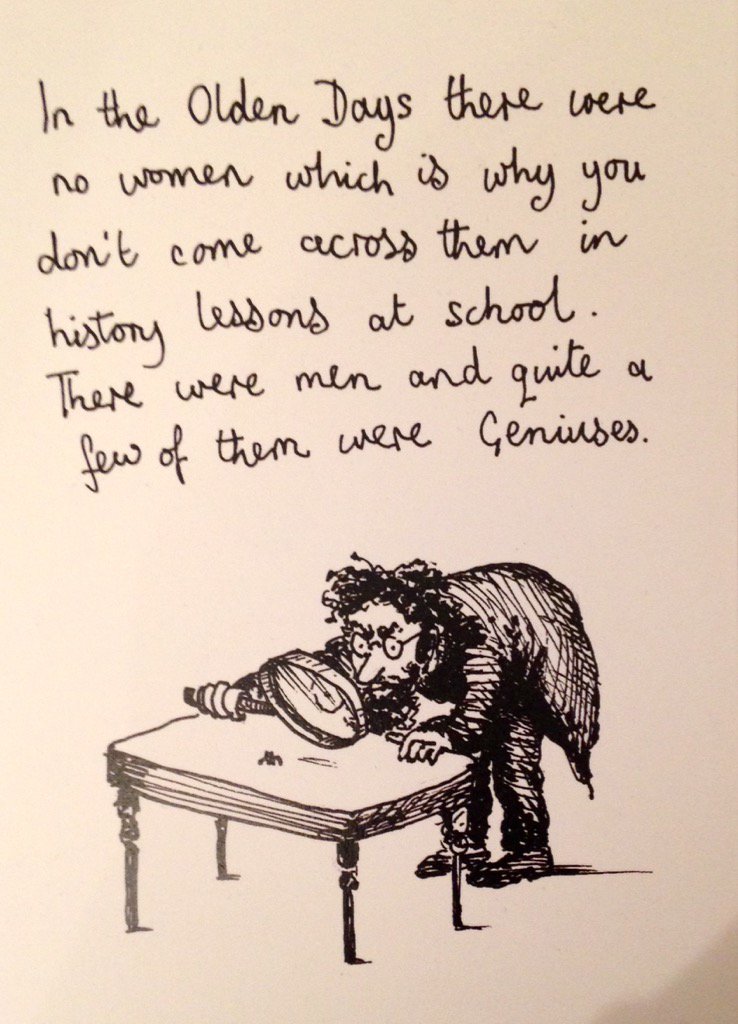 In the Olden Days there were
no women which is why you
don't come across them in
history lessons at school.
There were men and quite a
few of them were Geniuses.